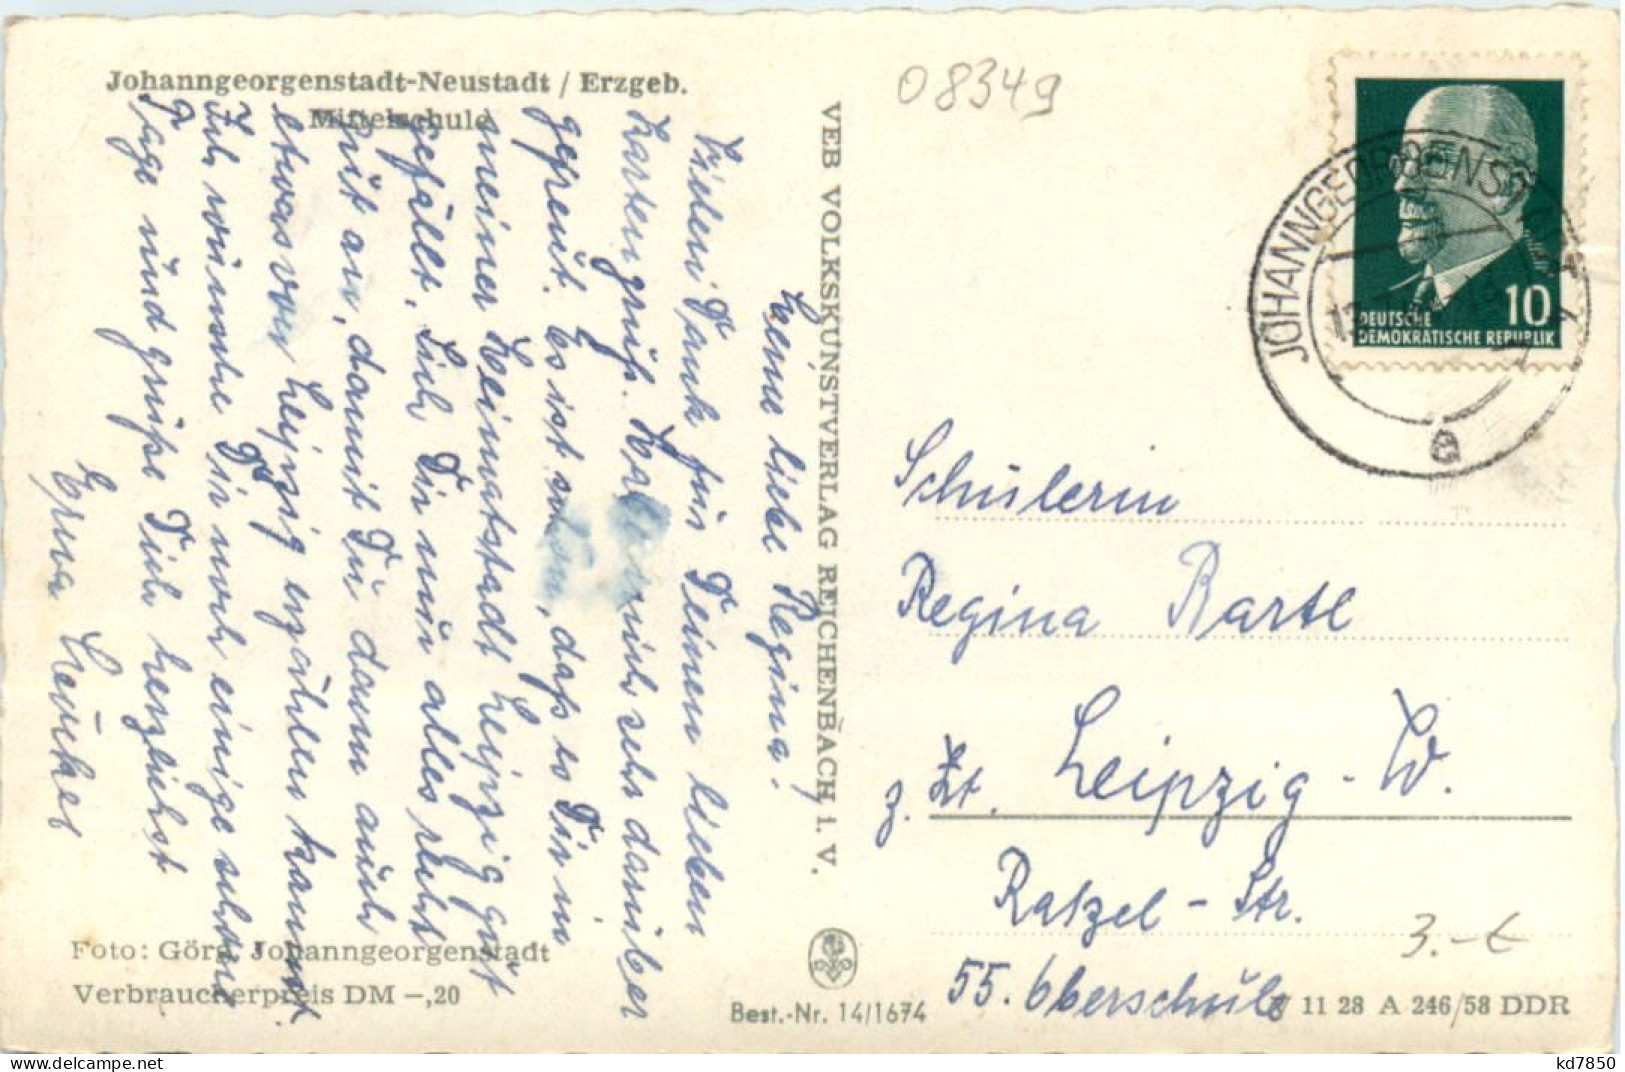 Johanngeorgenstadt-Neustadt / Erzgeb.
Mittelschule
08349
JOHANNGEORGENSTADT
a
10
DEUTSCHE
DEMOKRATISCHE REPUBLIK
Meine liebe Regina!
Vielen Dank für Deinen lieben
Kartengruß. Habe mich sehr darüber
gefreut. Es ist schön, daß es Dir in
meiner Heimatstadt Leipzig gut
gefällt. Sieh Dir nur alles recht
gut an, damit Du dann auch
etwas von Leipzig erzählen kannst.
Ich wünsche Dir noch einige schöne
Tage und grüße Dich herzlichst
Erna
VEB VOLKSKUNSTVERLAG REICHENBACH i. V.
Schülerin
Regina Bartl
z. Zt. Leipzig - W.
Ratzel - Str.
55. Oberschule
3.- €
Foto: Görg, Johanngeorgenstadt
Verbraucherpreis DM -,20
Best.-Nr. 14/1674
V 11 28 A 246/58 DDR
kd7850